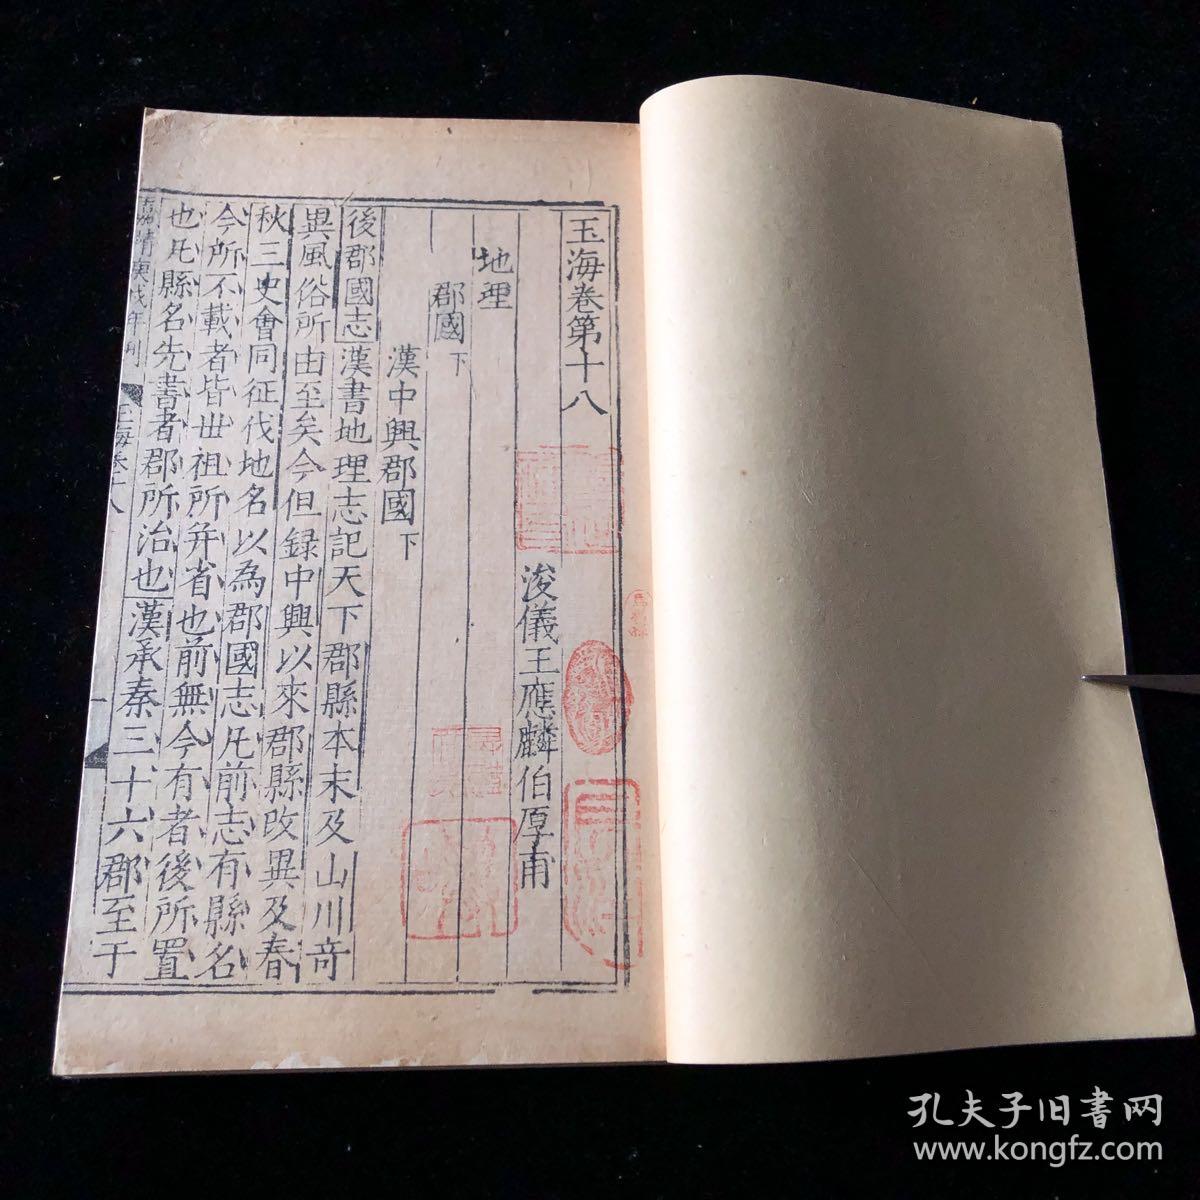 玉海卷第十八
浚儀王應麟伯厚甫
地理
郡國下
漢中興郡國下
後郡國志漢書地理志記天下郡縣本末及山川奇
異風俗所由至矣今但録中興以來郡縣改異及春
秋三史會同征伐地名以為郡國志凡前志有縣名
今所不載者皆丗祖所并省也前無今有者後所置
也凡縣名先書者郡所治也漢承秦三十六郡至于
靖庚戌年刊
玉海卷十八
孔夫子旧書网
www.kongfz.com